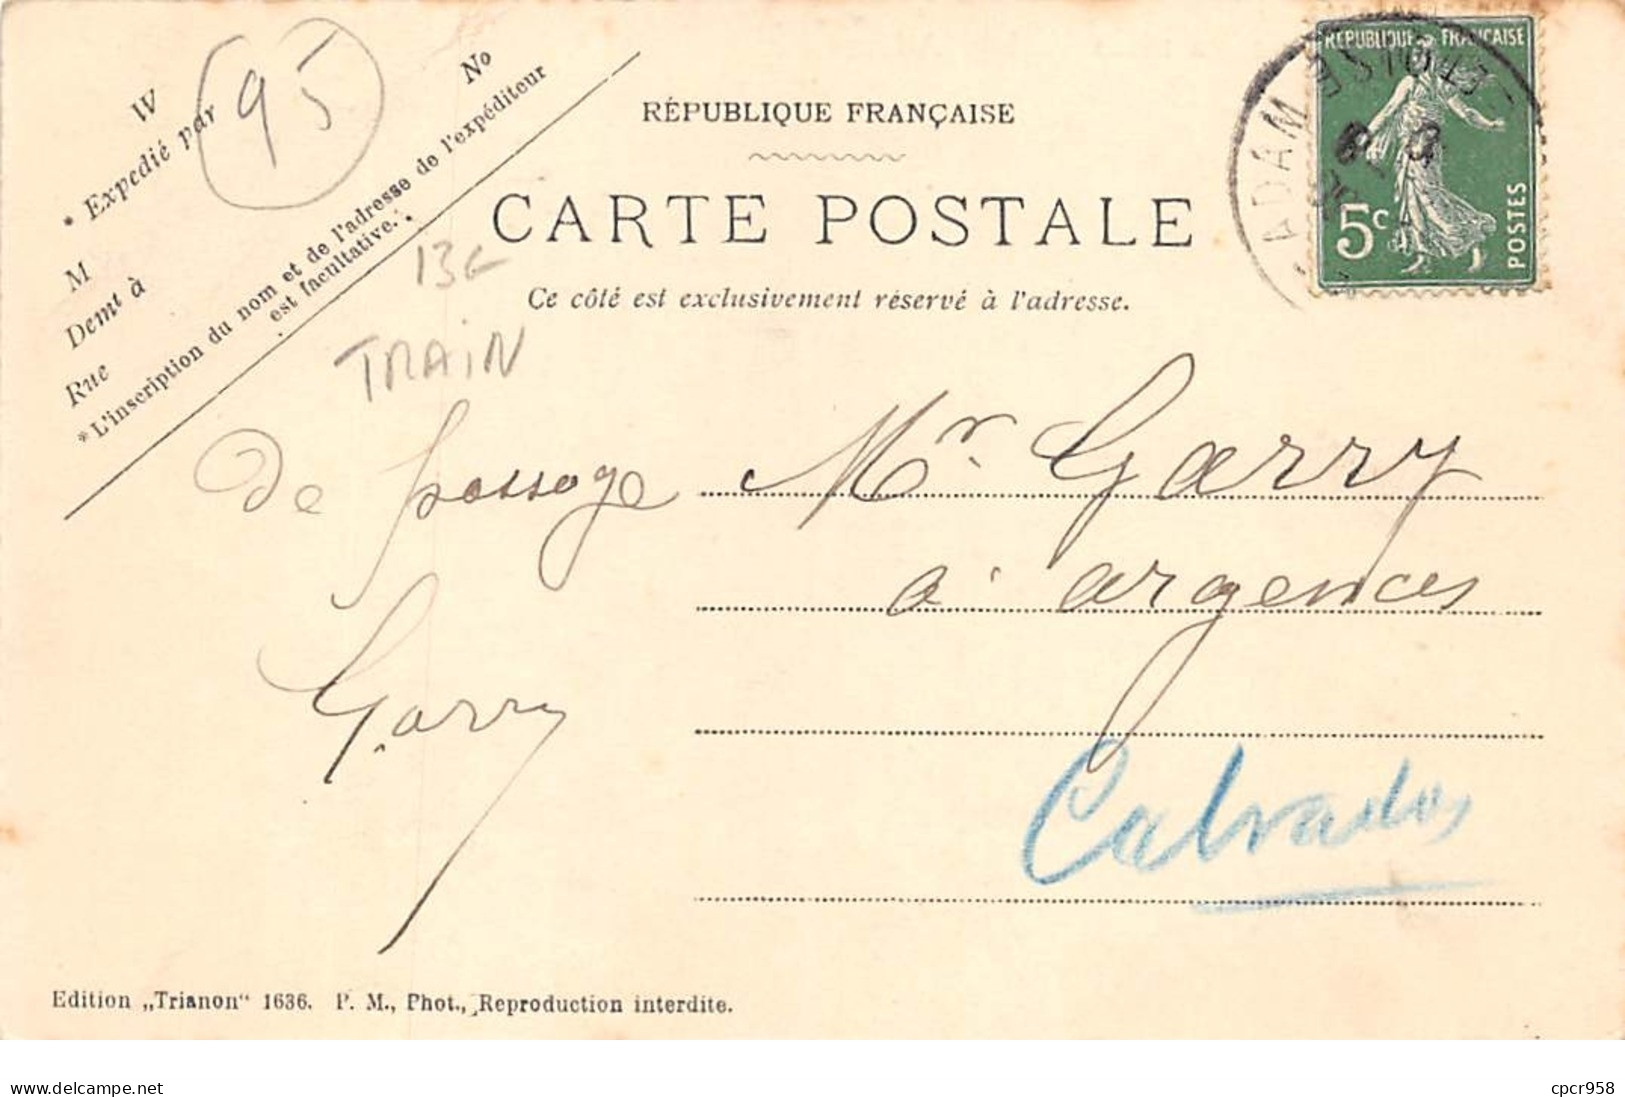 W No
* Expedié par
95
M
Demt à
Rue
*L'inscription du nom et de l'adresse de l'expéditeur
est facultative.
RÉPUBLIQUE FRANÇAISE
CARTE POSTALE
Ce côté est exclusivement réservé à l'adresse.
RÉPUBLIQUE FRANÇAISE
5c
POSTES
ADAM
ET OISE
13€
TRAIN
De passage
Garry
Mr. Garry
à argences
Calvados
Edition „Trianon“ 1636. P. M., Phot., Reproduction interdite.
delcampe.net
cpcr958